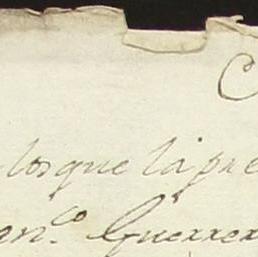 C
los que la pre
an.co Guerrer